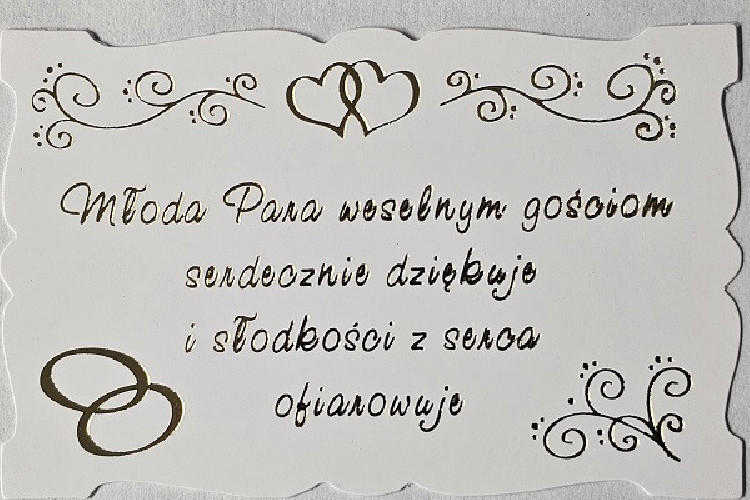 Młoda Para weselnym gościom
serdecznie dziękuje
i słodkości z serca
ofiarowuje